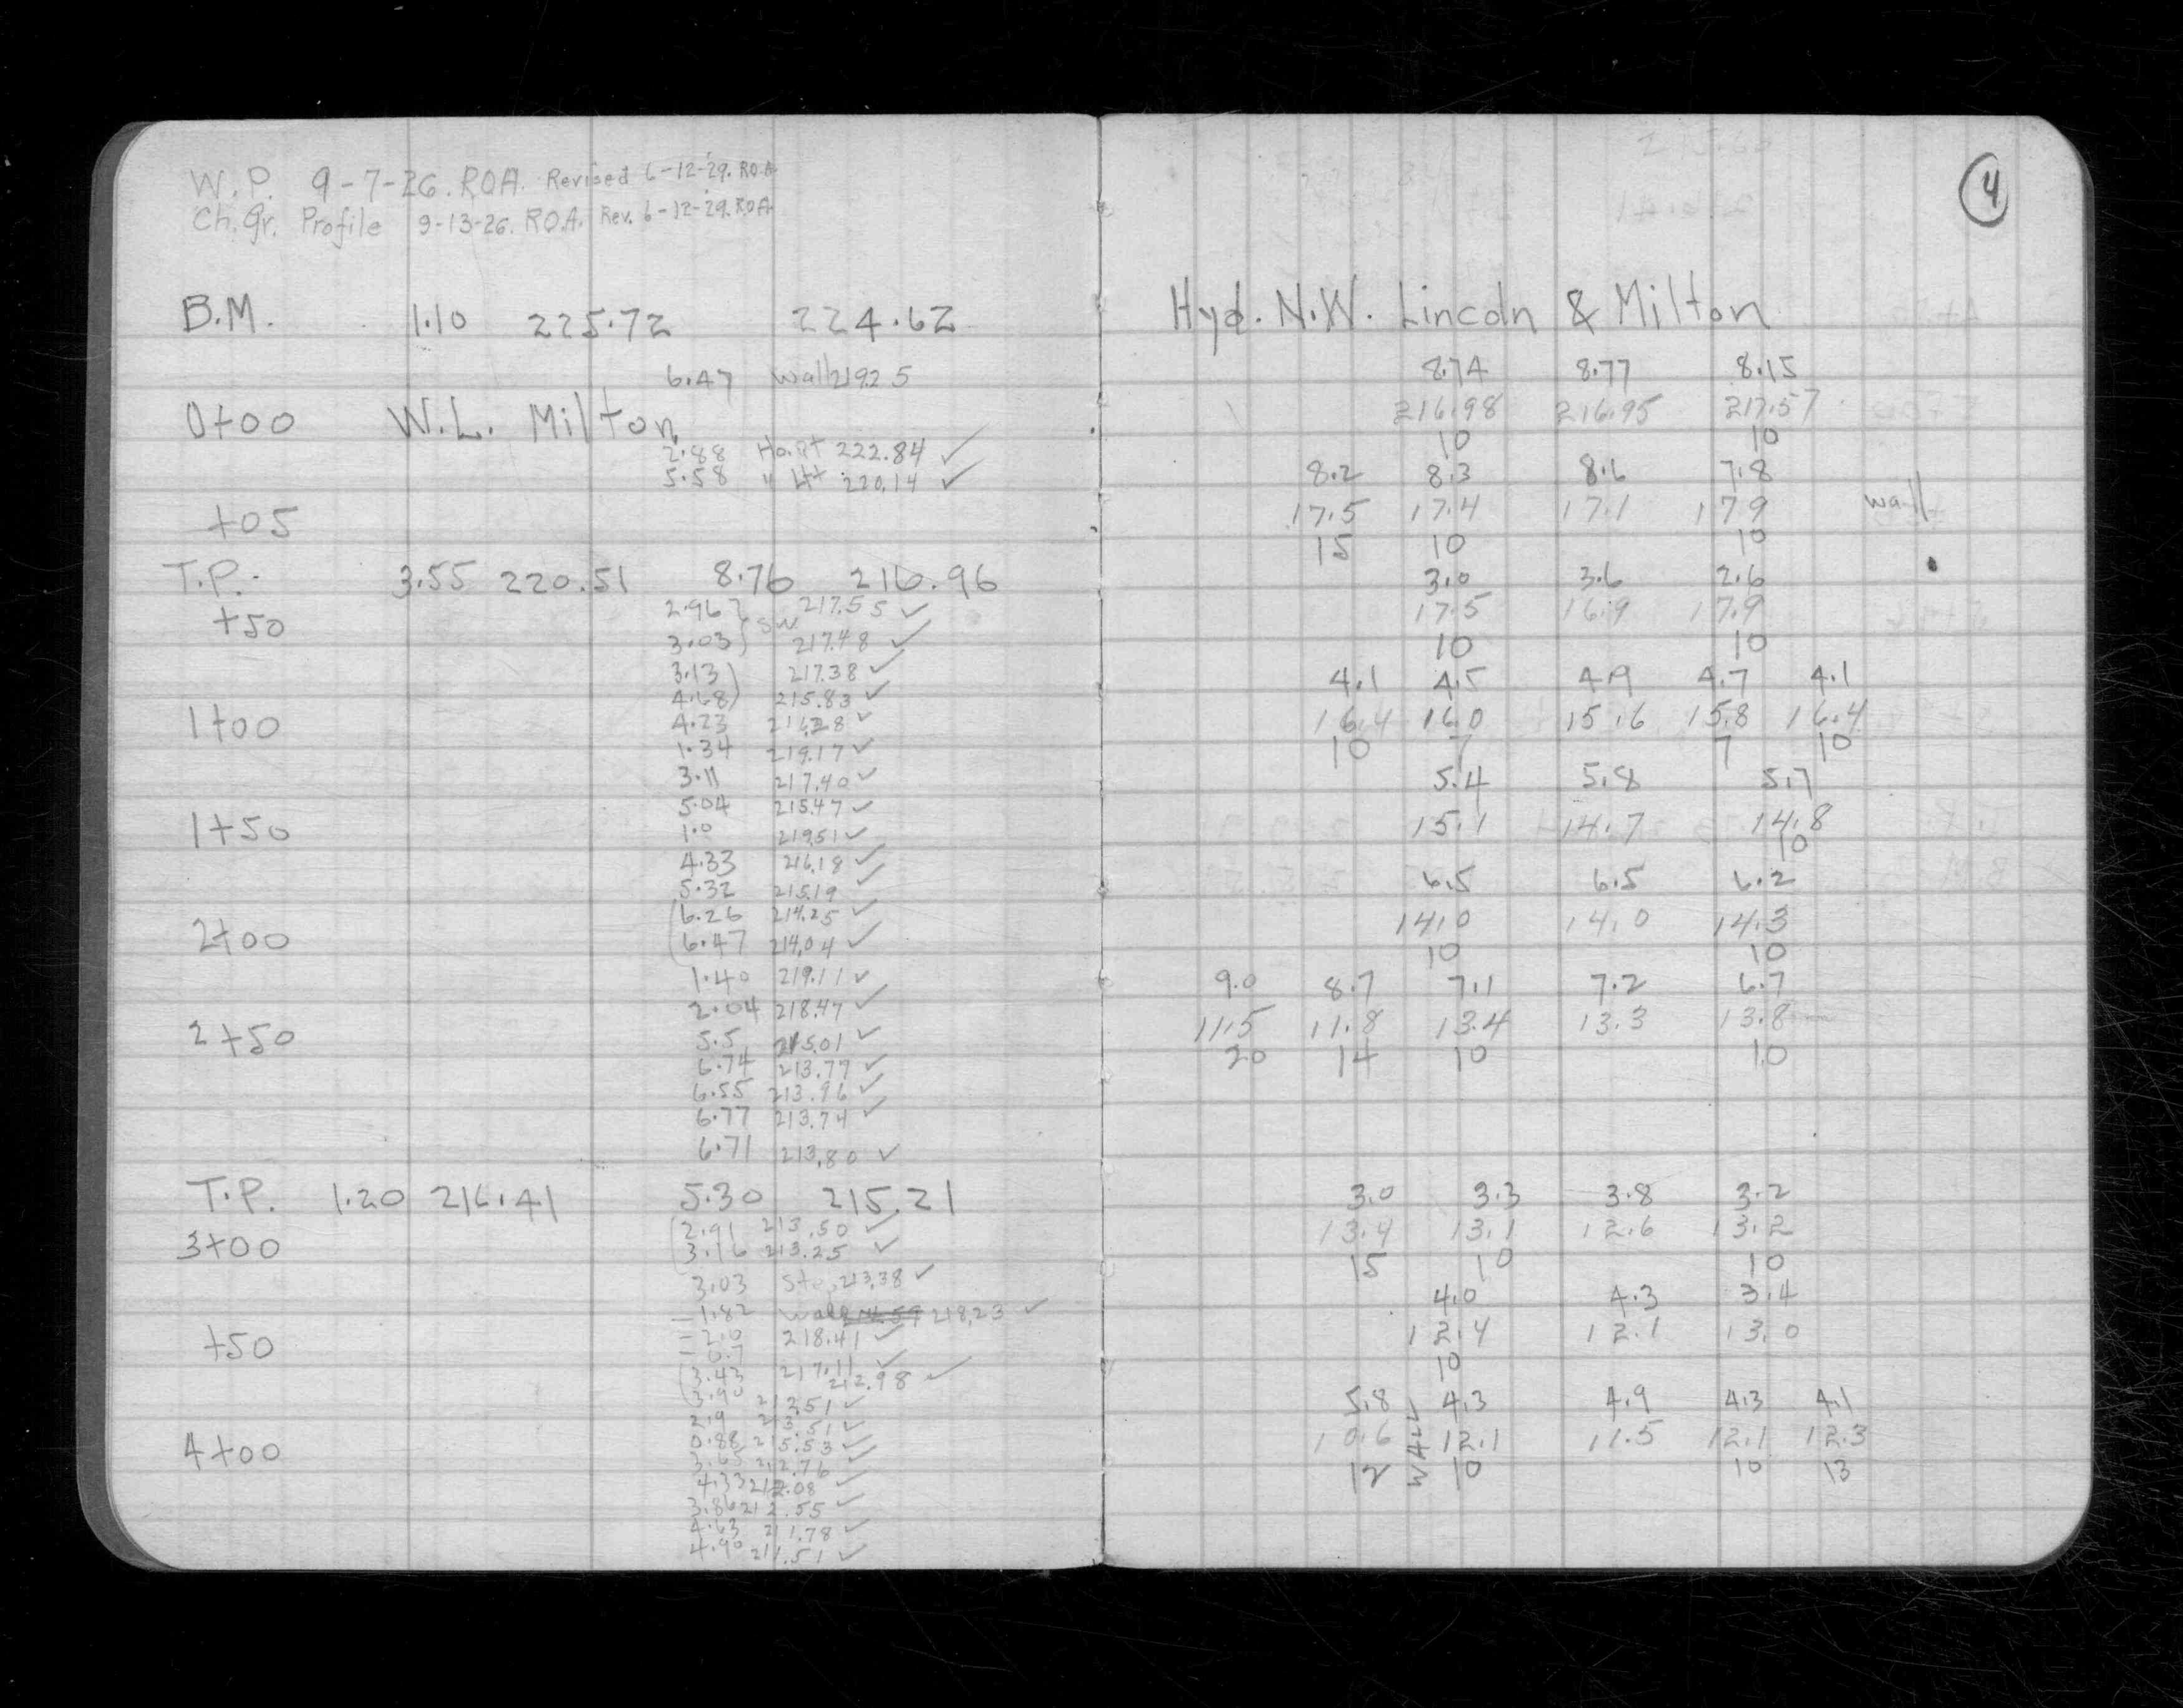 W.P. 9-7-26. R.O.A. Revised 6-12-29. R.O.A.
Ch. Gr. Profile 9-13-26. R.O.A. Rev. 6-12-29. R.O.A.
B.M. 1.10 225.72 224.62
6.47 Wall 219.25
0+00 W.L. Milton
2.88 Ho. Rt 222.84 ✓
5.58 " Lt 220.14 ✓
+05
T.P. 3.55 220.51 8.76 216.96
2.96 217.55 ✓
+50 SW
3.03 217.48 ✓
3.13 217.38 ✓
4.68 215.83 ✓
1+00 4.23 216.28 ✓
1.34 219.17 ✓
3.11 217.40 ✓
5.04 215.47 ✓
1+50 1.0 219.51 ✓
4.33 216.18 ✓
5.32 215.19 ✓
6.26 214.25 ✓
2+00 6.47 214.04 ✓
1.40 219.11 ✓
2.04 218.47 ✓
2+50 5.5 215.01 ✓
6.74 213.77 ✓
6.55 213.96 ✓
6.77 213.74 ✓
6.71 213.80 ✓
T.P. 1.20 216.41 5.30 215.21
2.91 213.50 ✓
3+00 3.16 213.25 ✓
3.03 Step 213.38 ✓
-1.82 Wall 218.23 ✓
+50 -2.0 218.41 ✓
-0.7 217.11 ✓
3.43 212.98 ✓
3.90 212.51 ✓
2.9 213.51 ✓
4+00 0.88 215.53 ✓
3.65 212.76 ✓
4.33 212.08 ✓
3.86 212.55 ✓
4.63 211.78 ✓
4.90 211.51 ✓
4
Hyd. N.W. Lincoln & Milton
8.74 8.77 8.15
216.98 216.95 217.57
10 10
8.2 8.3 8.6 7.8
17.5 17.4 17.1 17.9 wall
15 10 10
3.0 3.6 2.6
17.5 16.9 17.9
10 10
4.1 4.5 4.9 4.7 4.1
16.4 16.0 15.6 15.8 16.4
10 7 7 10
5.4 5.8 5.7
15.1 14.7 14.8
10
6.5 6.5 6.2
14.0 14.0 14.3
10 10
9.0 8.7 7.1 7.2 6.7
11.5 11.8 13.4 13.3 13.8
20 14 10 10
3.0 3.3 3.8 3.2
13.4 13.1 12.6 13.2
15 10 10
4.0 4.3 3.4
12.4 12.1 13.0
10
5.8 4.3 4.9 4.3 4.1
10.6 WALL 12.1 11.5 12.1 12.3
12 10 10 13